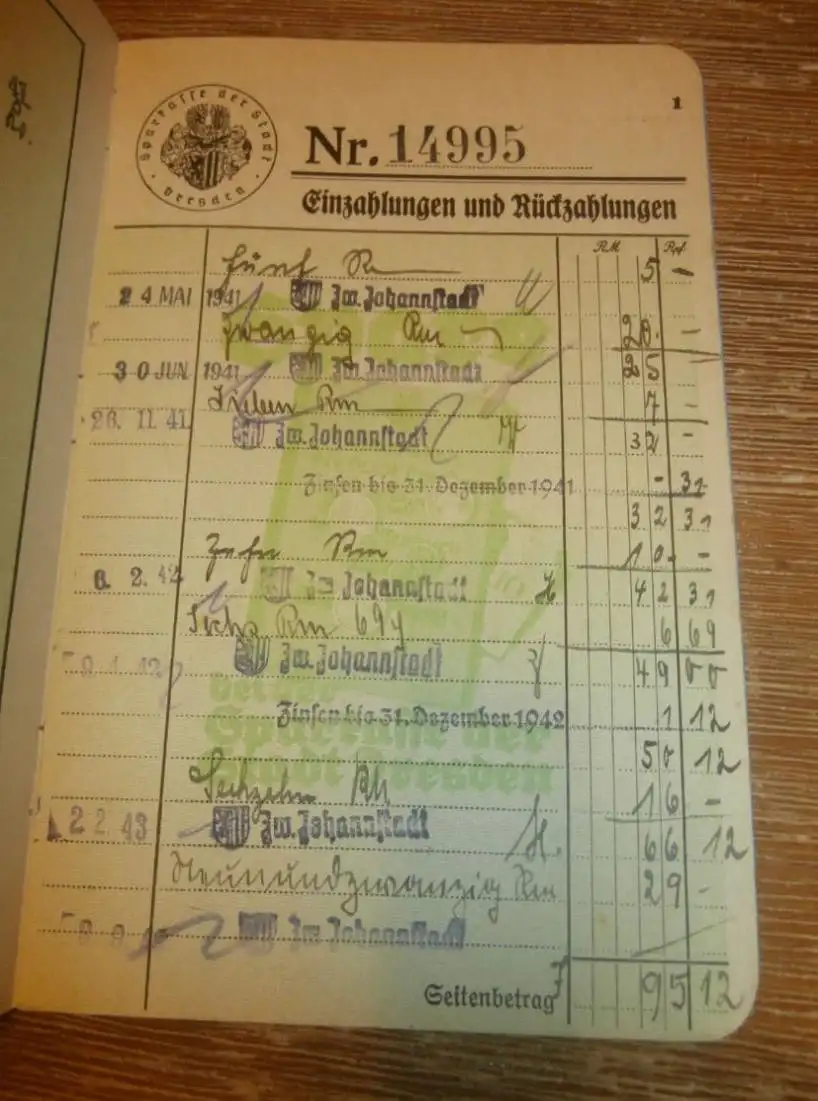 Sparkasse der Stadt Dresden
1
Nr. 14995
Einzahlungen und Rückzahlungen
RM Rpf
fünf Rm 5 –
24 MAI 1941 Zw. Johannstadt
zwanzig Rm 20. –
30 JUN 1941 Zw. Johannstadt 25
Sieben Rm 7 –
26. 11 41 Zw. Johannstadt 32 –
Zinsen bis 31. Dezember 1941 – 31
32 31
Zehn Rm 10. –
6. 2. 42 Zw. Johannstadt 42 31
Sechs Rm 69 6 69
Zw. Johannstadt 49 00
Zinsen bis 31. Dezember 1942 1 12
50 12
Sechzehn RM 16 –
2 2. 43 Zw. Johannstadt 66 12
Neunundzwanzig Rm 29 –
Zw. Johannstadt
Seitenbetrag 95 12
bei der
Sparkasse der
Stadt Dresden